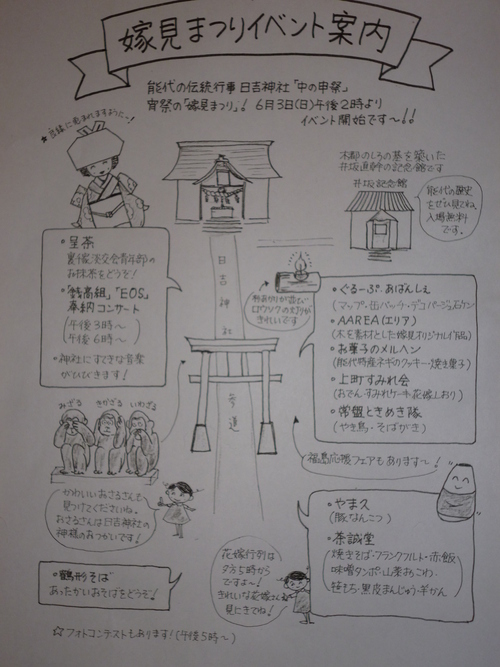 嫁見まつりイベント案内
能代の伝統行事 日吉神社「中の申祭」
宵祭の「嫁見まつり」! 6月3日(日)午後2時より
イベント開始です〜!!
☆良縁に恵まれますように〜!
木都のしろの基を築いた
井坂直幹の記念館です
井坂記念館
能代の歴史
をぜひ見てね。
入場無料
です。
・呈茶
裏千家淡交会青年部の
お抹茶をどうぞ!
・「銭高組」「EOS」
奉納コンサート
(午後3時〜
午後6時〜)
・神社にすてきな音楽
がひびきます!
日吉神社
参道
ロウソクの灯りが
きれいです
・ぐるーぷ・あばんしぇ
・AAREA(エリア)
(木を素材とした嫁見オリジナル作品)
・お菓子のメルヘン
(能代特産ネギのクッキー・焼き菓子)
・上町すみれ会
(おでん・すみれケーキ・花嫁しおり)
・常盤ときめき隊
(やき鳥・そばがき)
みざる きかざる いわざる
福島応援フェアもありまーす〜!
かわいいおさるさんも
見つけてくださいね。
おさるさんは日吉神社の
神様のおつかいです!
・やま久
(豚なんこつ)
・茶誠堂
(焼きそば・フランクフルト・赤飯
味噌タンポ・山菜おこわ・
笹もち・黒皮まんじゅう・ギかん)
花嫁行列は
夕方5時から
ですよ〜!
きれいな花嫁さんを
見にきてね!
・鶴形そば
あったかいおそばをどうぞ!
☆フォトコンテストもあります!(午後5時〜)